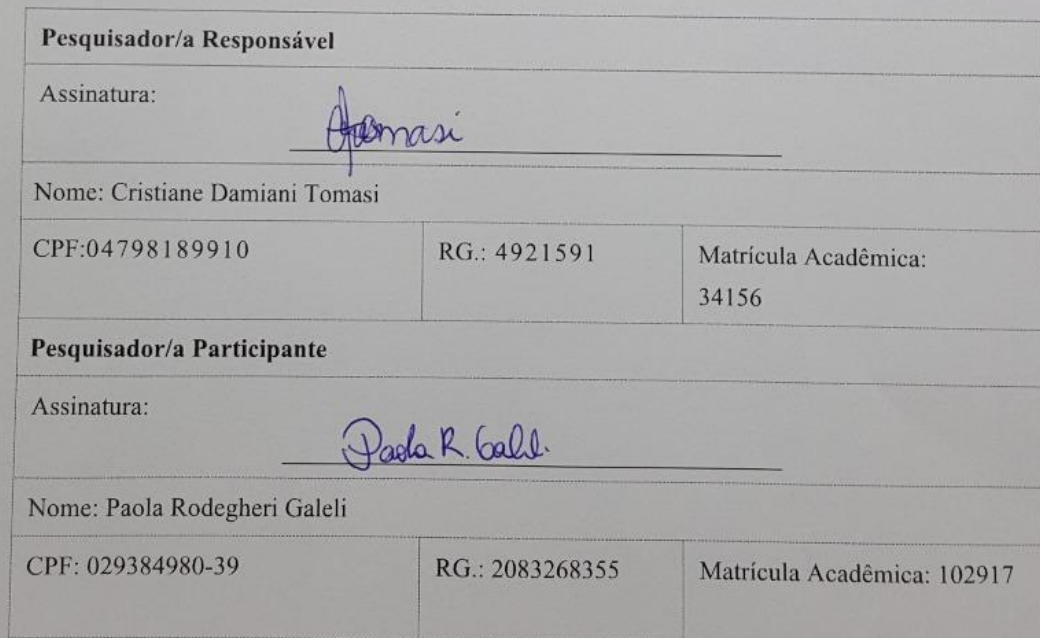 Pesquisador/a Responsável
Assinatura:
Nome: Cristiane Damiani Tomasi
CPF:04798189910 RG.: 4921591 Matrícula Acadêmica:
34156
Pesquisador/a Participante
Assinatura:
Paola R. Galeli
Nome: Paola Rodegheri Galeli
CPF: 029384980-39 RG.: 2083268355 Matrícula Acadêmica: 102917